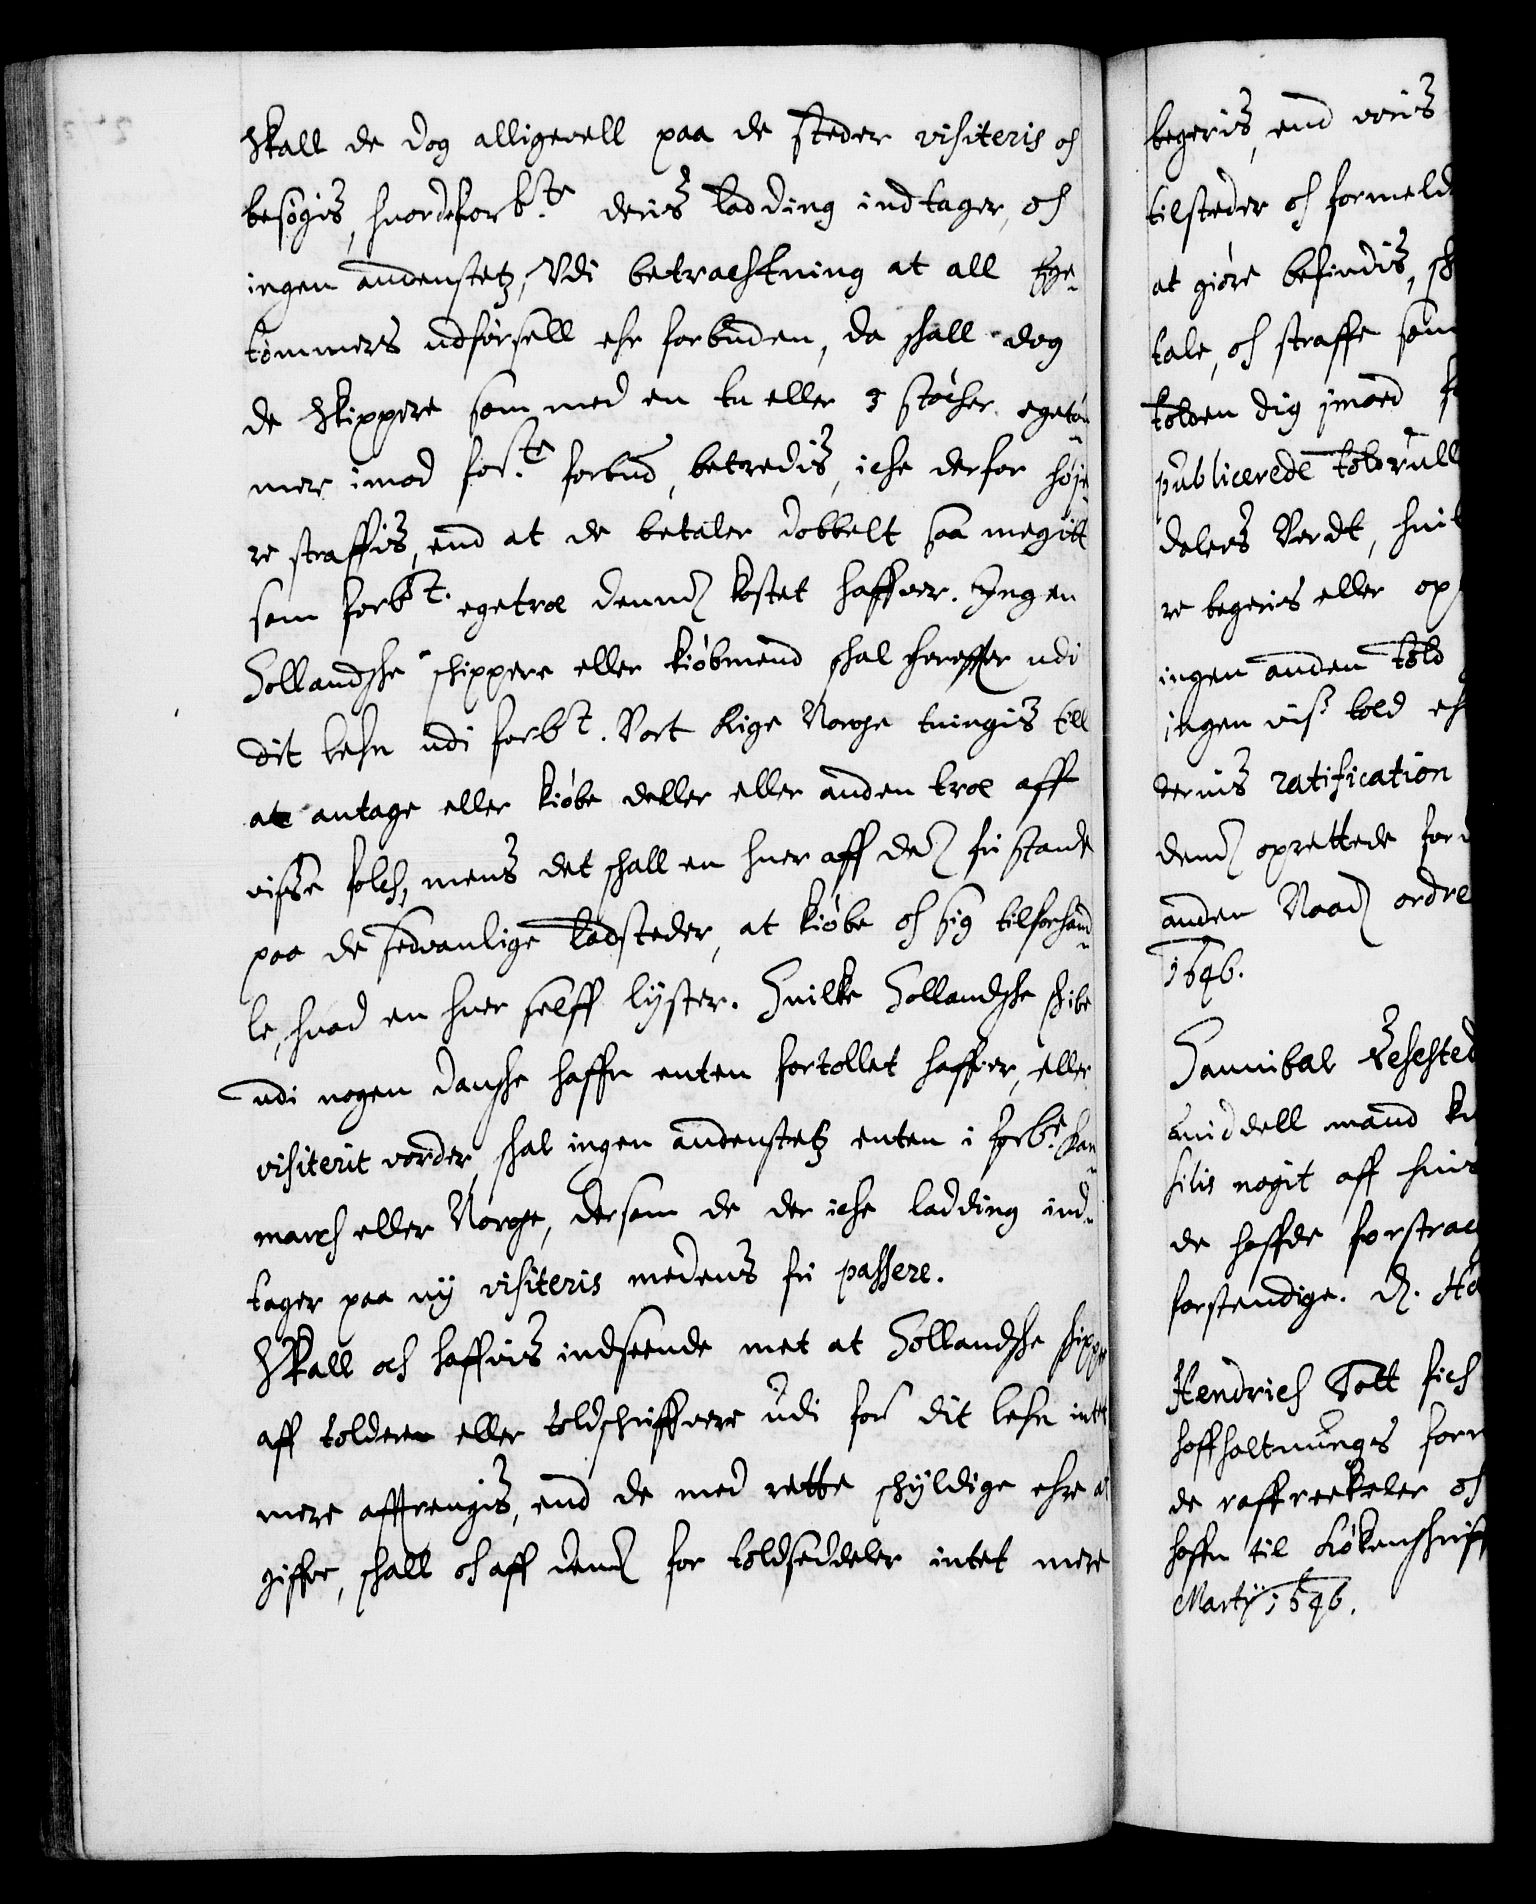 Skall de dog alligevell paa de steder visiteris och
besøgis, hvor de forbte deris ladding indtager, och
ingen andenstetz, Udi betrachtning at all Ege-
tømmers udførsell ehr forbuden, da skall dog
de Skippere som med en tu eller 3 støcher egetøm-
mer imod forte forbud, betredis, iche derfor høje-
re straffis, end at de betaler dobbelt saa megitt
som forbt. egetræ dennom kostet haffver. Ingen
Hollandsche skippere eller kiøbmend skal herefter udi
dit Lehn udi forbt. Vort Rige Norge tvingis till
at antage eller kiøbe deller eller anden træ aff
visse folch, mens det skall en hver aff dem fri stande
paa de sedvanlige Ladsteder, at kiøbe och sig tilforhand-
le, hvad en hver selff lyster. Hvilke Hollandsche skibe
udi nogen dansche haffn enten fortollet haffver, eller
visiterit vorder, skal ingen andenstetz enten i forbte Dan-
march eller Norge, dersom de der iche ladding ind-
tager paa ny visiteris medens fri passere.
Skall och haffvis indseende met at Hollandsche skippere
aff tolderen eller toldschriffvere udi for dit lehn intet
mere afftrengis, end de med rette schyldige ehre at
giffve, skall och aff dem for toldseddeler intet mere
begeris, end voris
tilsteder och formeld
at giøre befindis, sk
tale, och straffe som
tolden dig imod
publicerede toldrull
dalers Verdt, hvi
re begeris eller op
ingen anden told
ingen viss told eh
deris ratification
dem oprettede for
anden Naad ordre
1646.
Hannibal Sehested
middell mand
hilis nogit aff hvis
de haffde forstrac
forstendige. d. Ha
Hendrich Tott fich
hoffholtnungs forr
de raffreekeler och
haffn til Kiøkenschriff
Martij 1646.